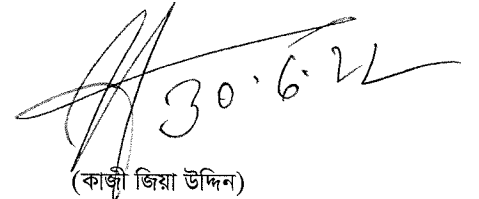 30.6.22
(কাজী জিয়া উদ্দিন)